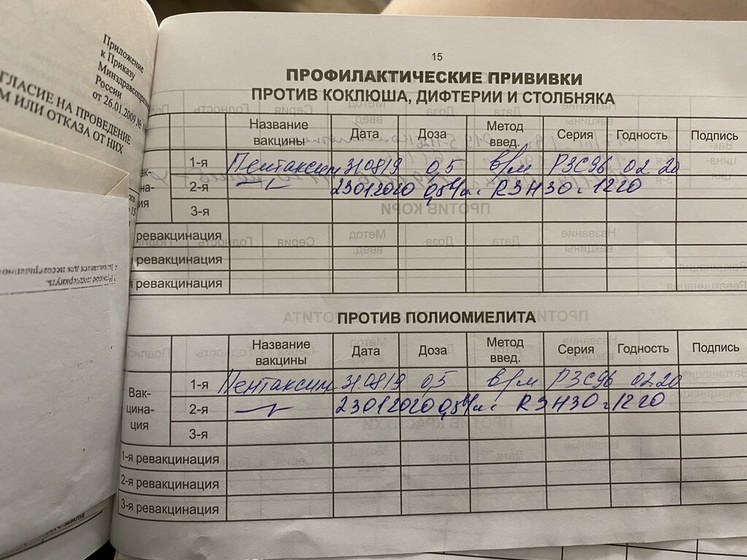 Приложение
к Приказу
Минздравсоцразвития
России
от 26.01.2009 №
СОГЛАСИЕ НА ПРОВЕДЕНИЕ
ИЛИ ОТКАЗА ОТ НИХ
15
ПРОФИЛАКТИЧЕСКИЕ ПРИВИВКИ
ПРОТИВ КОКЛЮША, ДИФТЕРИИ И СТОЛБНЯКА
Название вакцины Дата Доза Метод введ. Серия Годность Подпись
1-я Пентаксим 310819 0,5 в/м P3C96 02 20
2-я 23012020 0,5 R3H30 1220
3-я
ревакцинация
ревакцинация
ревакцинация
ПРОТИВ ПОЛИОМИЕЛИТА
Название вакцины Дата Доза Метод введ. Серия Годность Подпись
Вак-цина-ция
1-я Пентаксим 310819 0,5 в/м P3C96 02 20
2-я 23012020 0,5 R3H30 1220
3-я
1-я ревакцинация
2-я ревакцинация
3-я ревакцинация